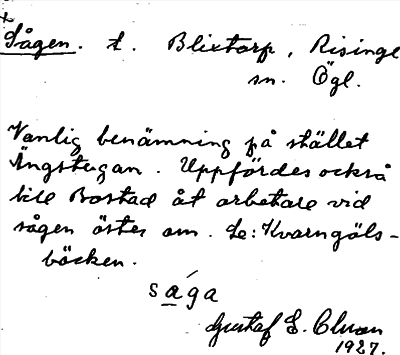 x
Sågen. t. Blixtorp, Risinge
sn. Ögl.
Vanlig benämning på stället
Ängstugan. Uppfördes också
till Bostad åt arbetare vid
sågen öster om. Se: Kvarngöls-
bäcken.
såga
Gustaf E.
1927.